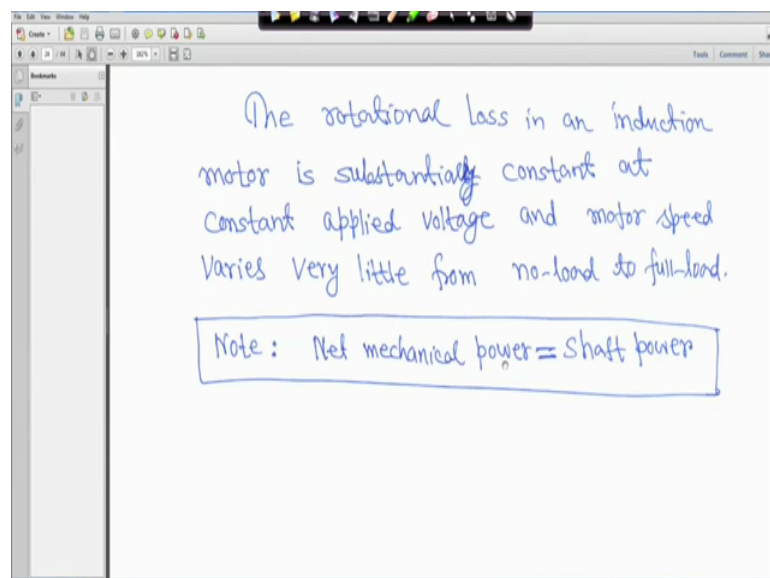 File Edit View Window Help
Create
24 / 84
182%
Tools Comment
Bookmarks
The rotational loss in an induction
motor is substantially constant at
constant applied voltage and motor speed
varies very little from no-load to full-load.
Note: Net mechanical power = Shaft power